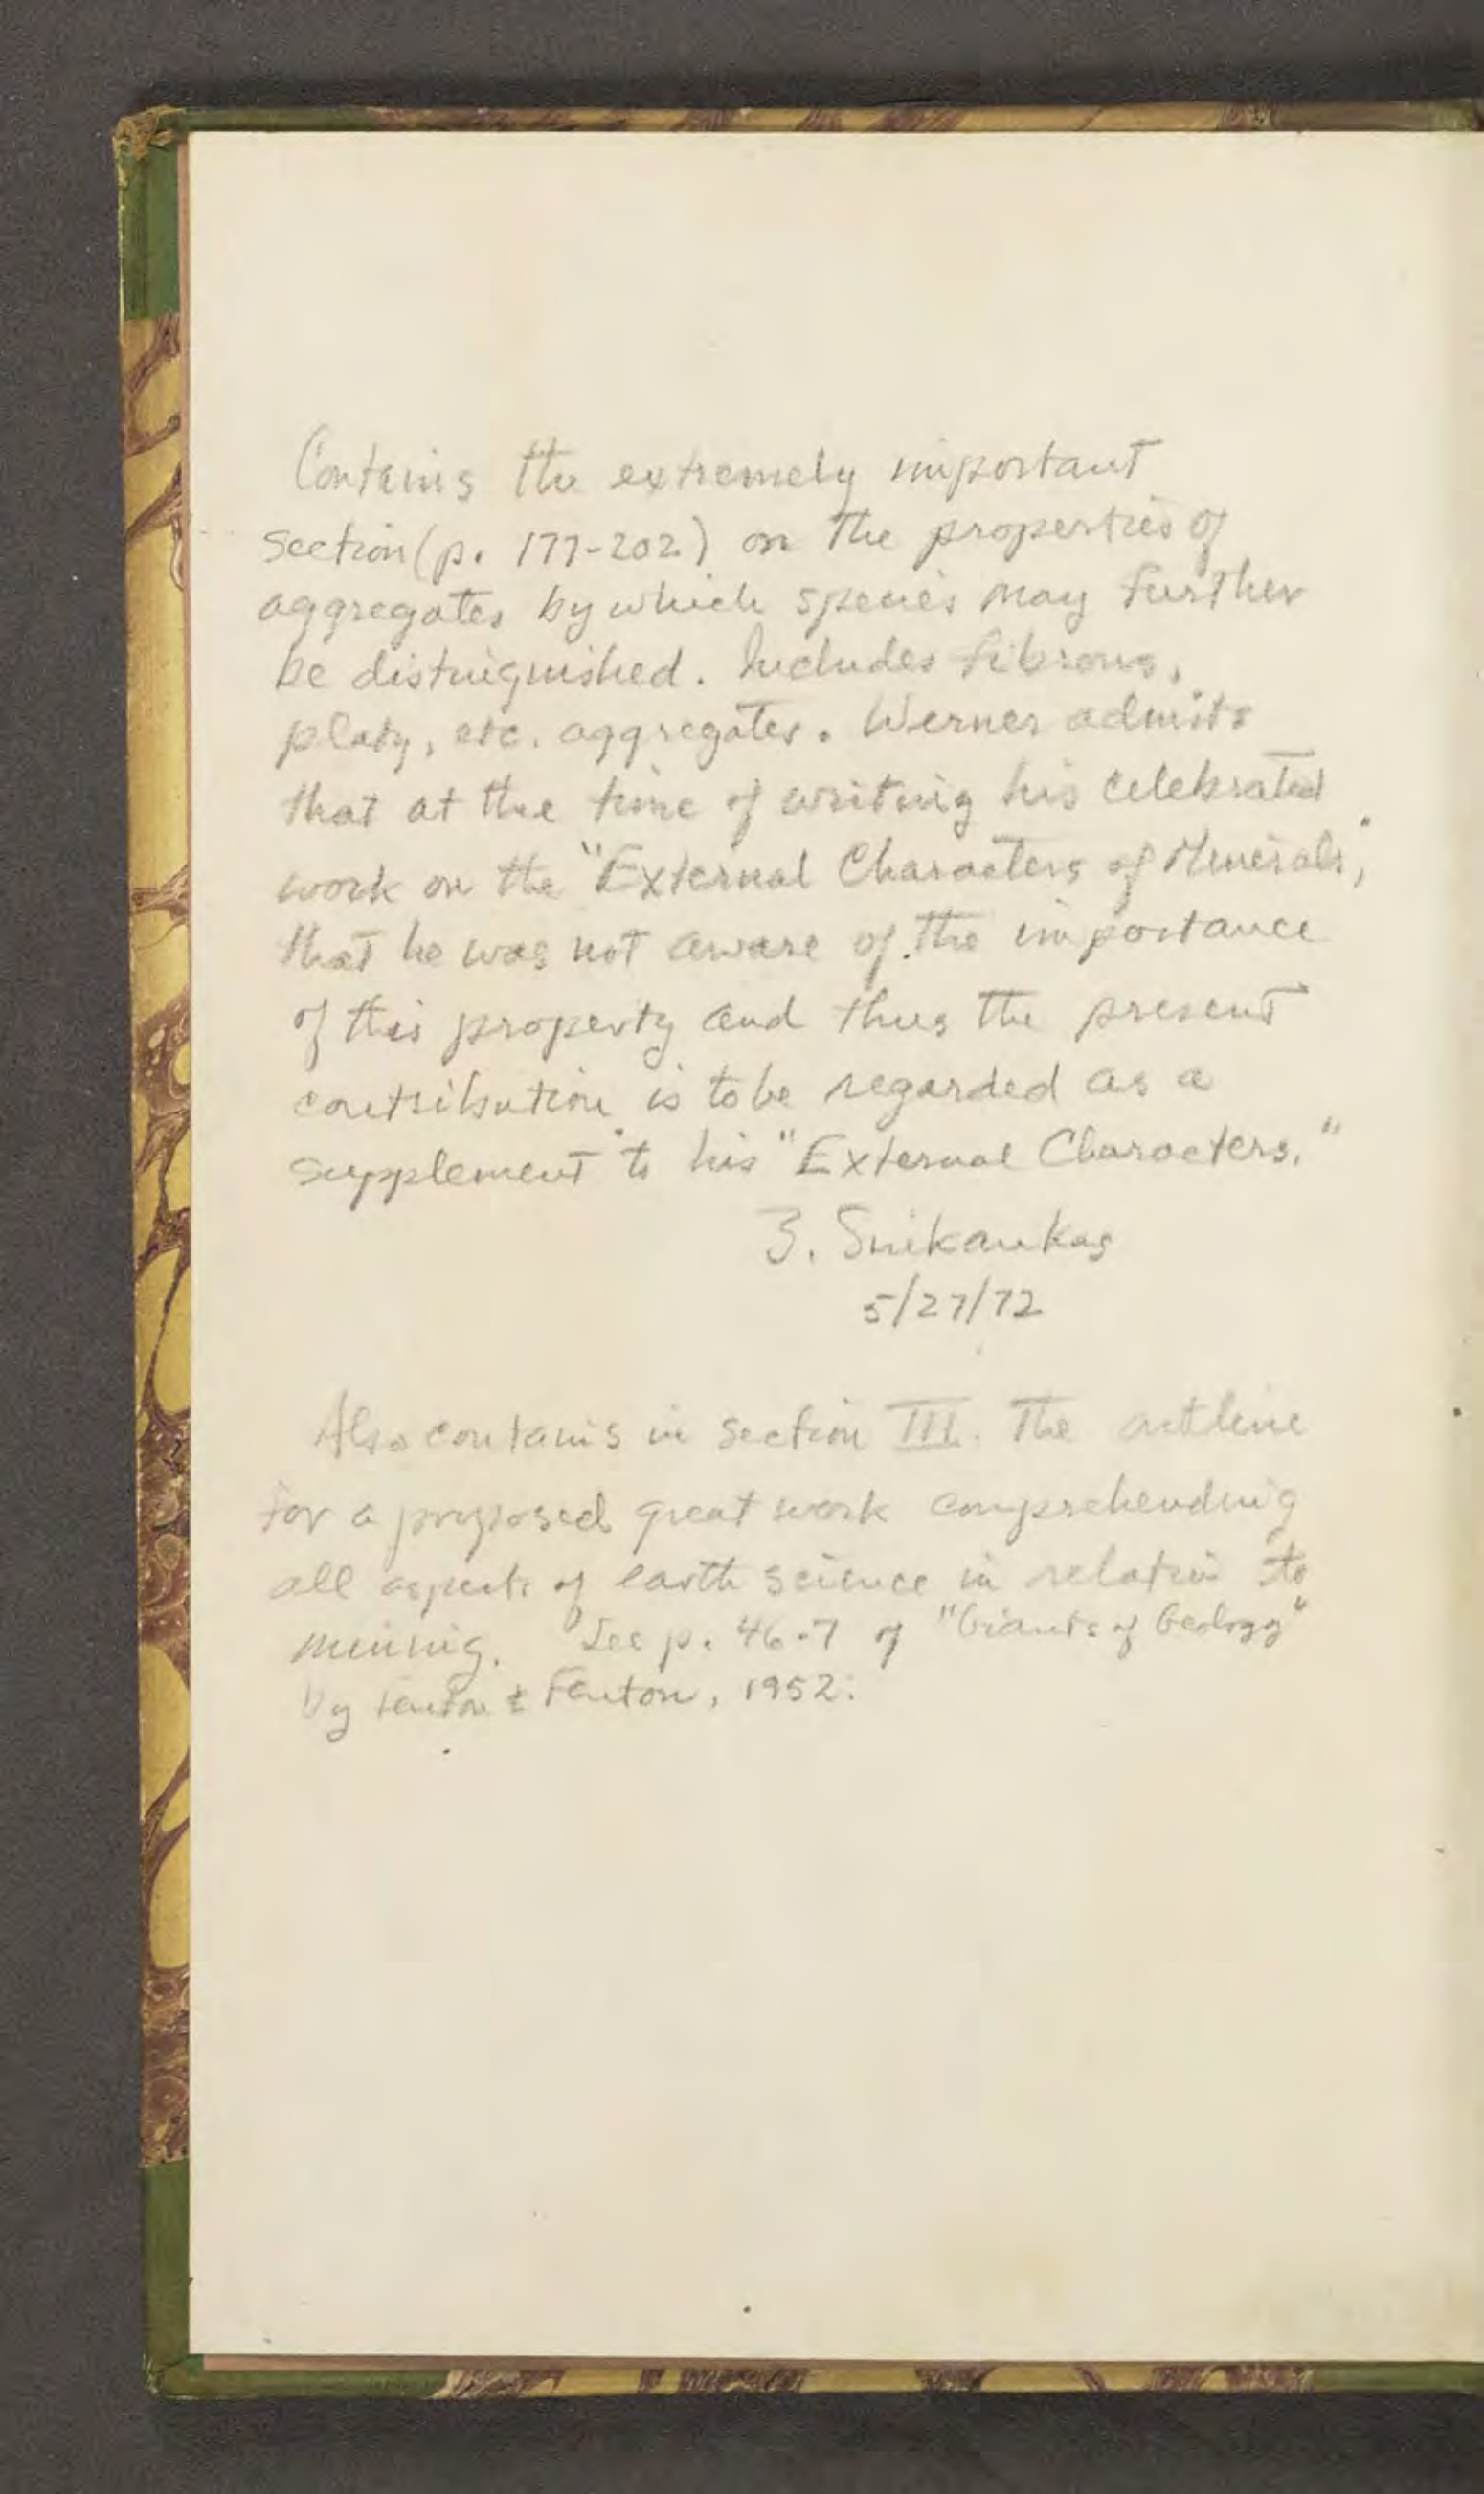 Contains the extremely important
section (p. 177-202) on the properties of
aggregates by which species may further
be distinguished. Includes fibrous,
platy, etc. aggregates. Werner admits
that at the time of writing his celebrated
work on the "External Characters of Minerals,"
that he was not aware of the importance
of this property and thus the present
contribution is to be regarded as a
supplement to his "External Characters."
5/27/72
Also contains in section III. The outline
for a proposed great work comprehending
all aspects of earth science in relation to
mining. See p. 46-7 of "Giants of Geology"
by Fenton & Fenton, 1952.